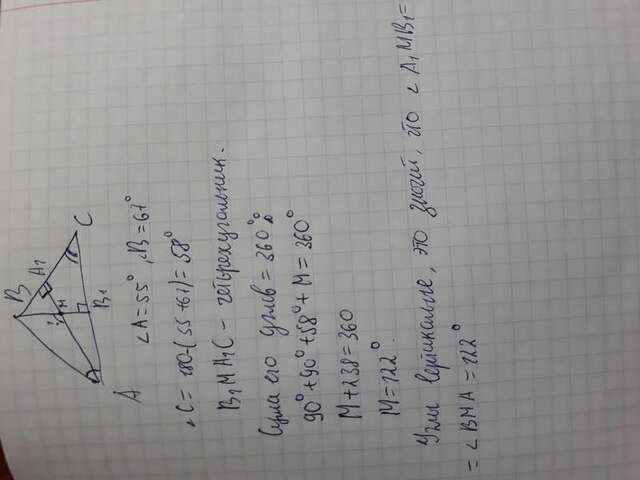 B
A1
?
M
C
B1
A
∠A = 55°, ∠B = 67°
∠C = 180-(55+67) = 58°
B1MA1C - четырехугольник.
Сума его углов = 360°
90° + 90° + 58° + M = 360°
M + 238 = 360
M = 122°.
Углы вертикальные, это значит, что ∠A1MB1 =
= ∠BMA = 122°